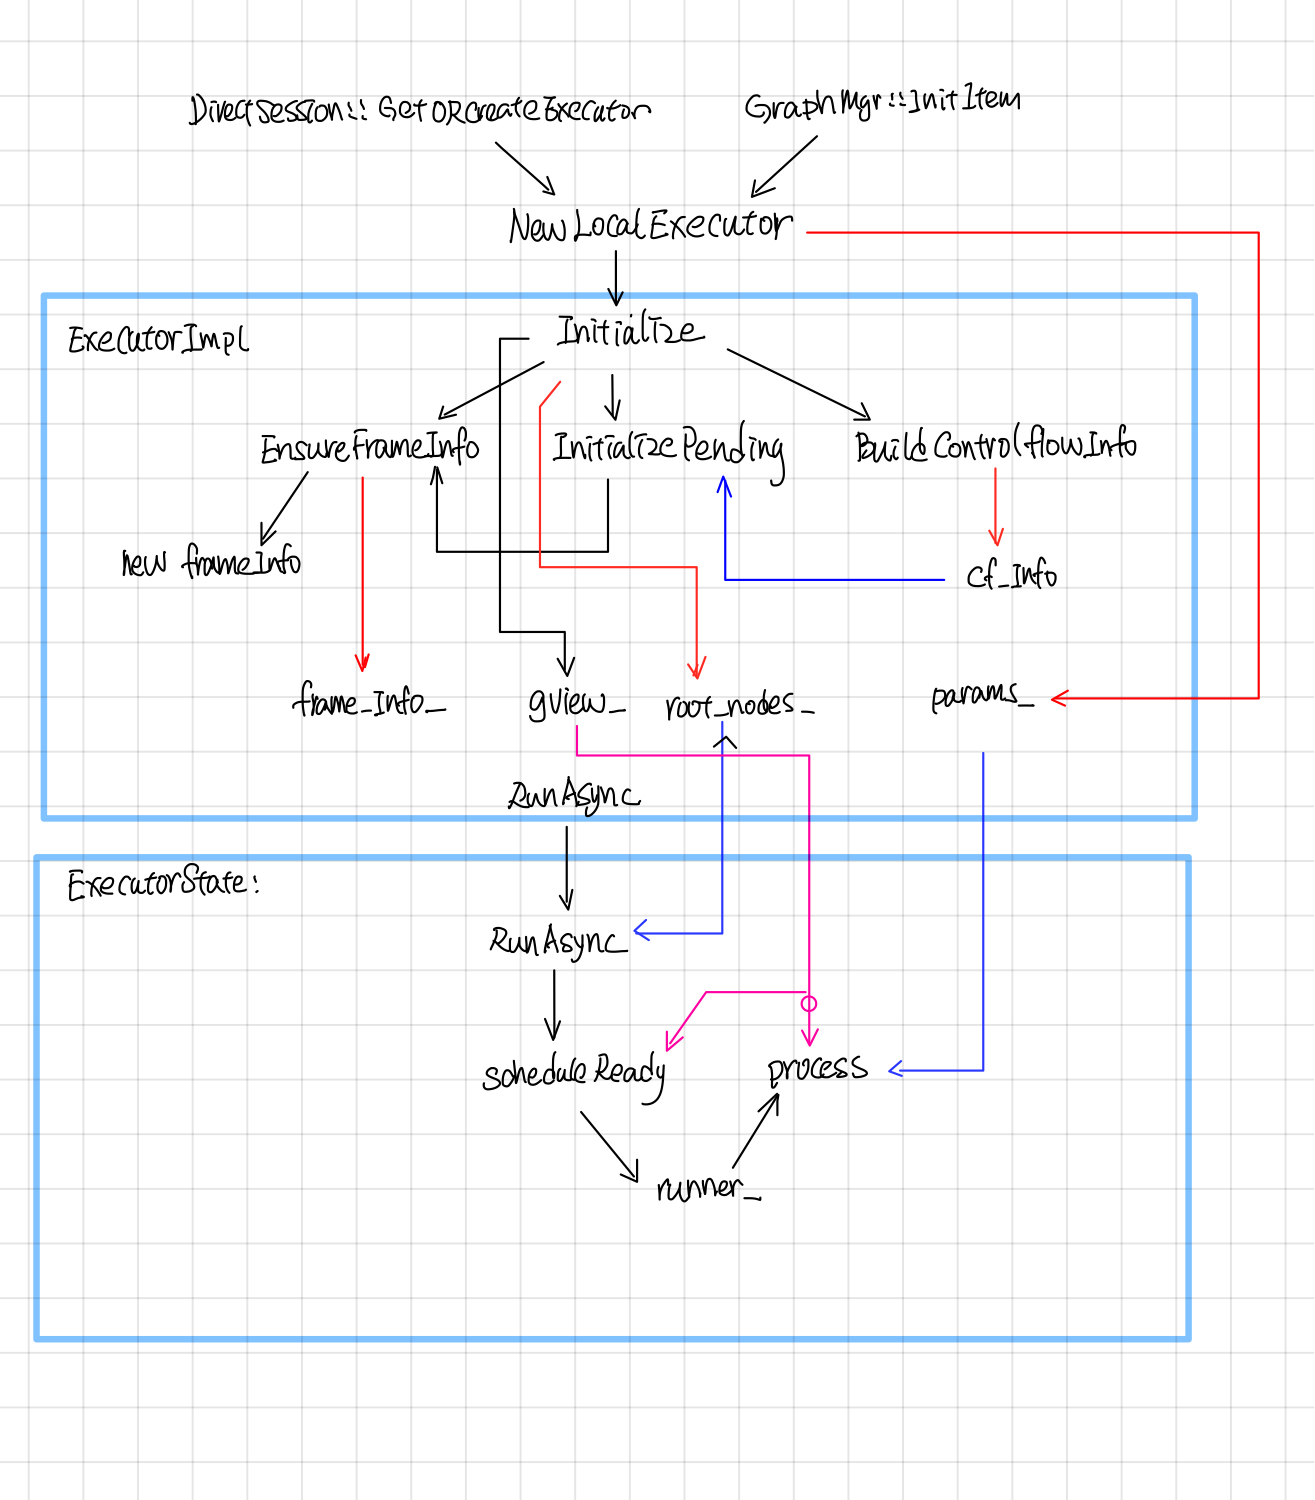 DirectSession::GetORCreateExecutor
GraphMgr::InitItem
NewLocalExecutor
ExecutorImpl
Initialize
EnsureFrameInfo
InitializePending
BuildControlflowInfo
new frameInfo
cf_Info
frame_Info_
gview_
root_nodes_
params_
RunAsync
ExecutorState:
RunAsync
scheduleReady
process
runner_